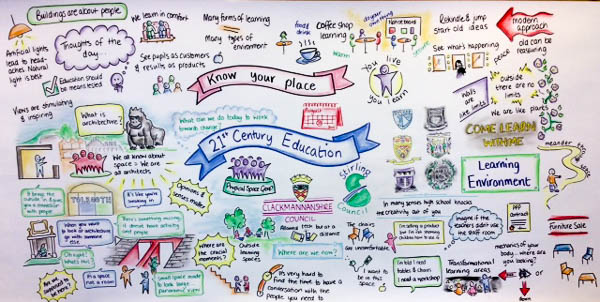 Buildings are about people.
We learn in comfort
Many forms of learning
Many types of environment
food & drink
Coffee shop learning
warm
Rekindle & jump start old ideas
See what's happening
peace
modern approach
old can be reassuring
Artificial lights lead to head- aches. Natural light is best
Thoughts of the day
Education should be means tested
See pupils as customers & results as products
Know your place
You live
You learn
outside there are no limits
walls are like limits
We are like plants
COME LEARN WITH ME
meander
Views are stimulating & inspiring
What is architecture?
What can we do today to work towards change?
We all know about space > We are all architects
21st Century Education
August
Stirling Council
Learning Environment
TOLBOOTH
It's like you're sneaking in
Opinions & senses matter
Physical Space Group
CLACKMANNANSHIRE COUNCIL
In many senses high school knocks the creativity out of you
When you have to look at architecture go with someone else.
There's something missing it doesn't have activity and people
Where are the crucial moments?
Outside learning spaces
Where are we now?
The classics
Imagine if the teachers didn't use the staff room
PPP CONTRACT
Furniture Sale
I want to be in this space
I'm told I need tables & chairs I need a workshop
Transformational learning areas
mechanics of your body - where are you looking?
or
Down
It's a space not a room
Small space made to look large panoramic view
It's very hard to find the time to have a conversation with the people you need to